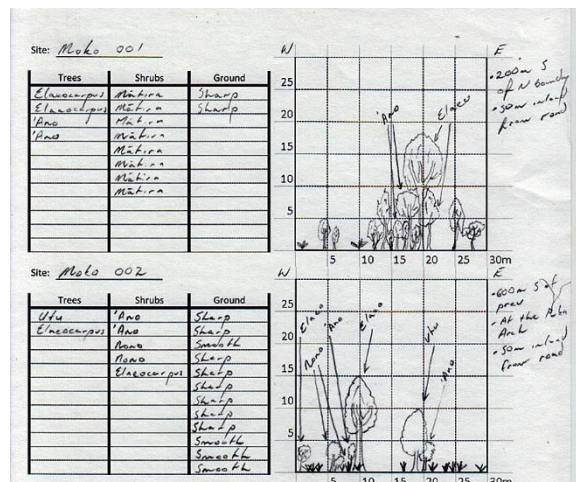 Site: Moko 001
W E
Trees Shrubs Ground
Elaeocarpus Mātira Sharp
Elaeocarpus Mātira Sharp
'Ano Mātira
'Ano Mātira
Mātira
Mātira
Mātira
Mātira
25
20
15
10
5
5 10 15 20 25 30m
'Ano
Elaeo
• 200m S
of N Boundary
• 50m inland
from road
Site: Moko 002
W E
Trees Shrubs Ground
Utu 'Ano Sharp
Elaeocarpus 'Ano Sharp
Nono Smooth
Nono Sharp
Elaeocarpus Sharp
Sharp
Sharp
Sharp
Sharp
Smooth
Smooth
Smooth
25
20
15
10
5
5 10 15 20 25 30m
Elaeo
Nono
'Ano
Elaeo
Utu
'Ano
• 600m S of
prev
• At the
Arch
• 50m inland
from road